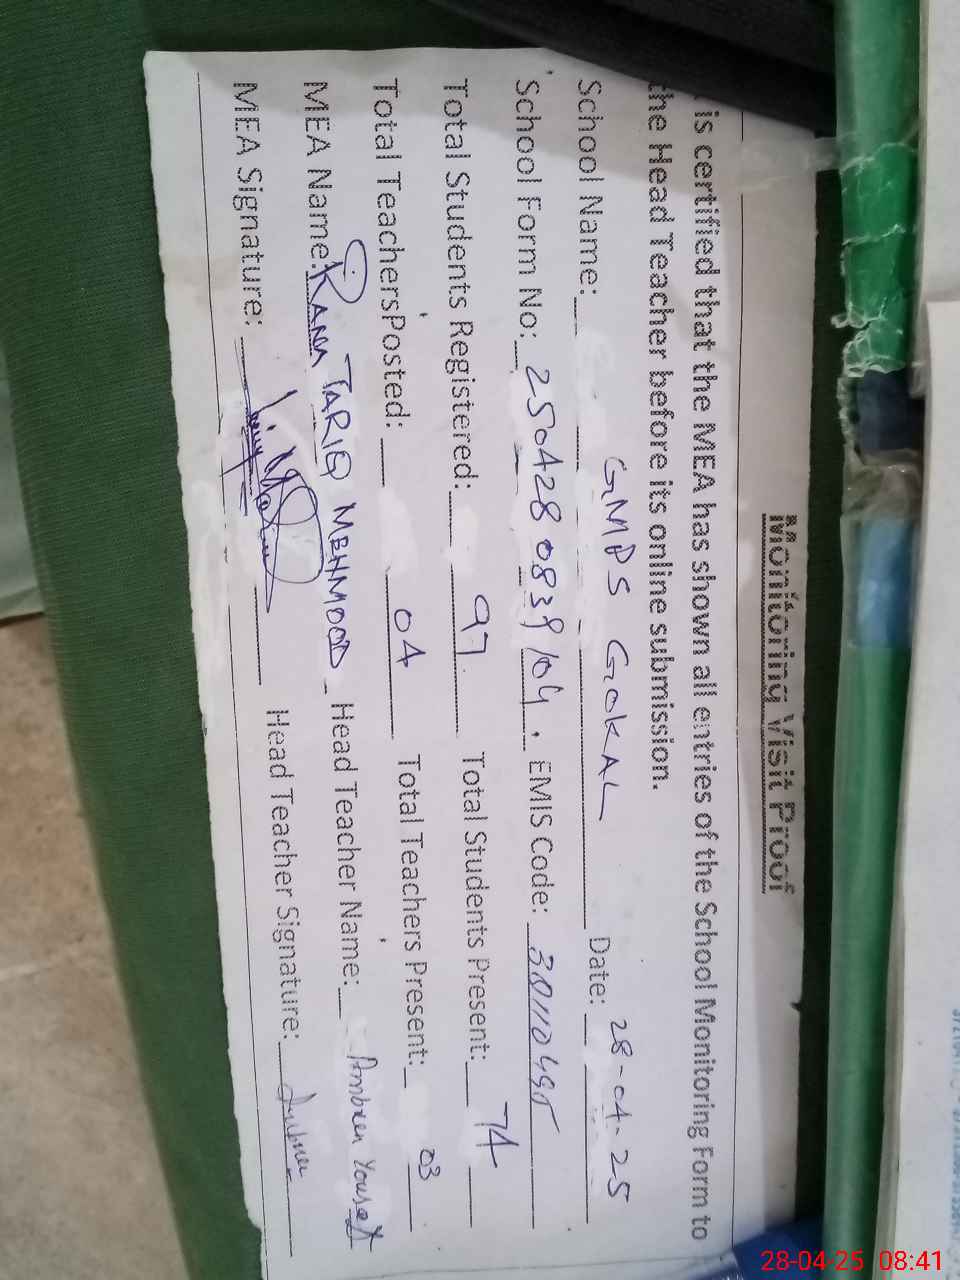 Monitoring Visit Proof
is certified that the MEA has shown all entries of the School Monitoring Form to
the Head Teacher before its online submission.
School Name: GMPS GOKAL Date: 28-04-25
School Form No: 250428 0839 104. EMIS Code:
Total Students Registered: 97 Total Students Present: 74
Total TeachersPosted: 04 Total Teachers Present: 03
MEA Name: RANA TARIQ MEHMOOD Head Teacher Name: Ambreen Yousaf
MEA Signature: Head Teacher Signature:
28-04-25 08:41